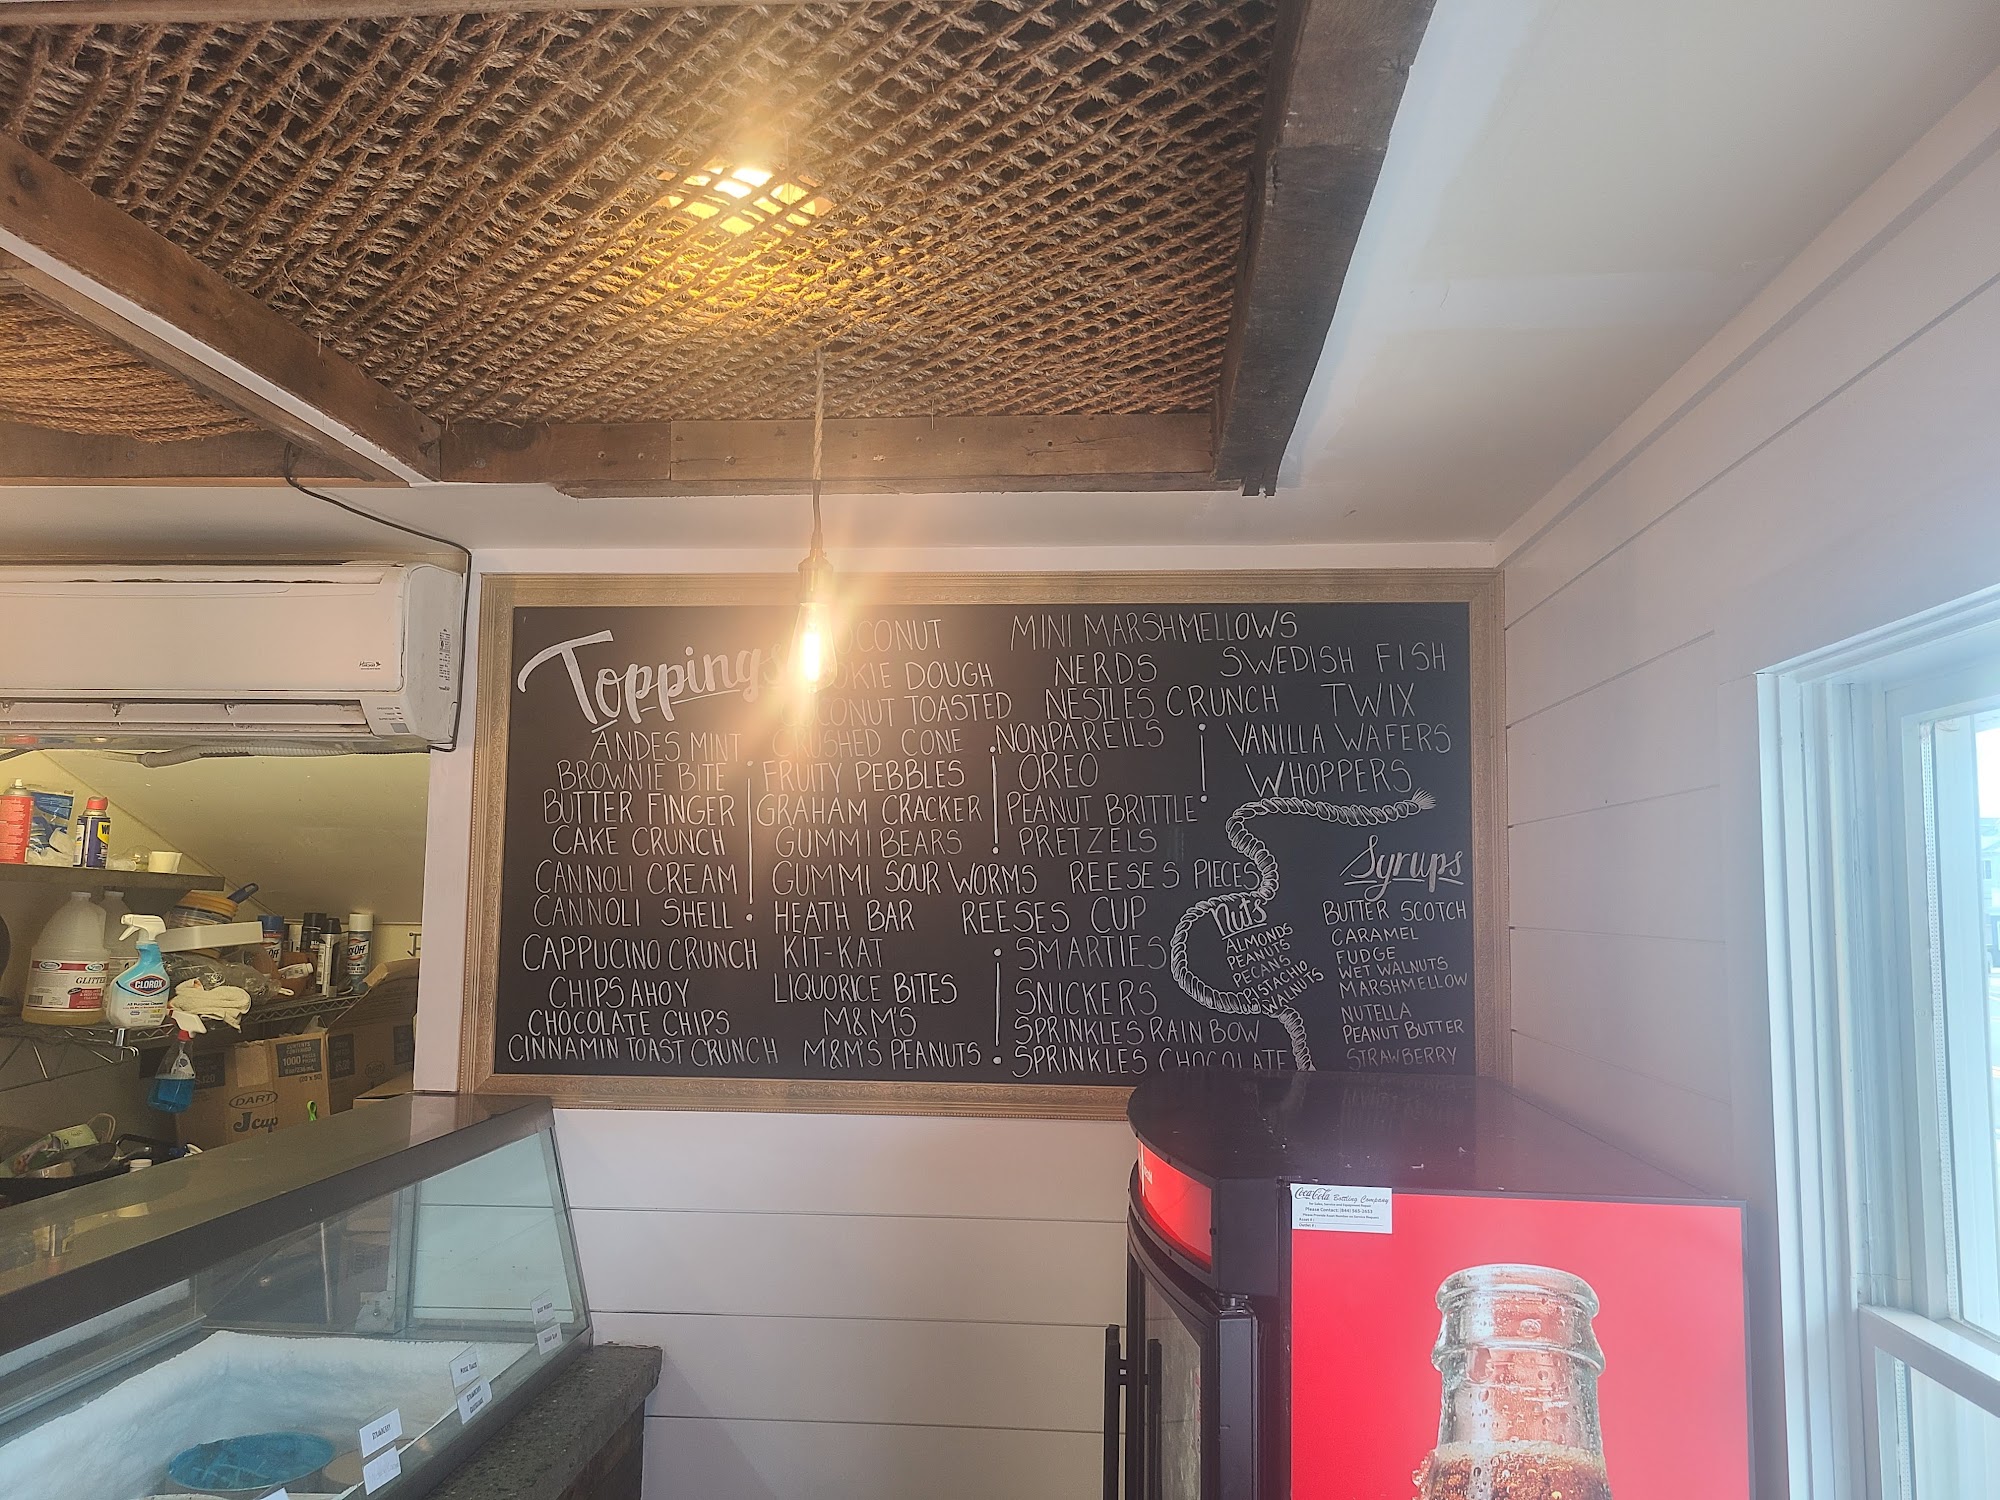 Toppings
ANDES MINT
BROWNIE BITE
BUTTER FINGER
CAKE CRUNCH
CANNOLI CREAM
CANNOLI SHELL
CAPPUCINO CRUNCH
CHIPS AHOY
CHOCOLATE CHIPS
CINNAMIN TOAST CRUNCH
DOUGH
TOASTED
CRUSHED CONE
FRUITY PEBBLES
GRAHAM CRACKER
GUMMI BEARS
GUMMI SOUR WORMS
HEATH BAR
KIT-KAT
LIQUORICE BITES
M&M'S
M&M'S PEANUTS
MINI MARSHMELLOWS
NERDS
NESTLES CRUNCH
NONPAREILS
OREO
PEANUT BRITTLE
PRETZELS
REESES PIECES
REESES CUP
SMARTIES
SNICKERS
SPRINKLES RAINBOW
SPRINKLES CHOCOLATE
SWEDISH FISH
TWIX
VANILLA WAFERS
WHOPPERS
Nuts
ALMONDS
PEANUTS
PECANS
PISTACHIO
WALNUTS
Syrups
BUTTER SCOTCH
CARAMEL
FUDGE
WET WALNUTS
MARSHMELLOW
NUTELLA
PEANUT BUTTER
STRAWBERRY
CLOROX
GLITTER
1000
DART
J cup
Coca-Cola Bottling Company